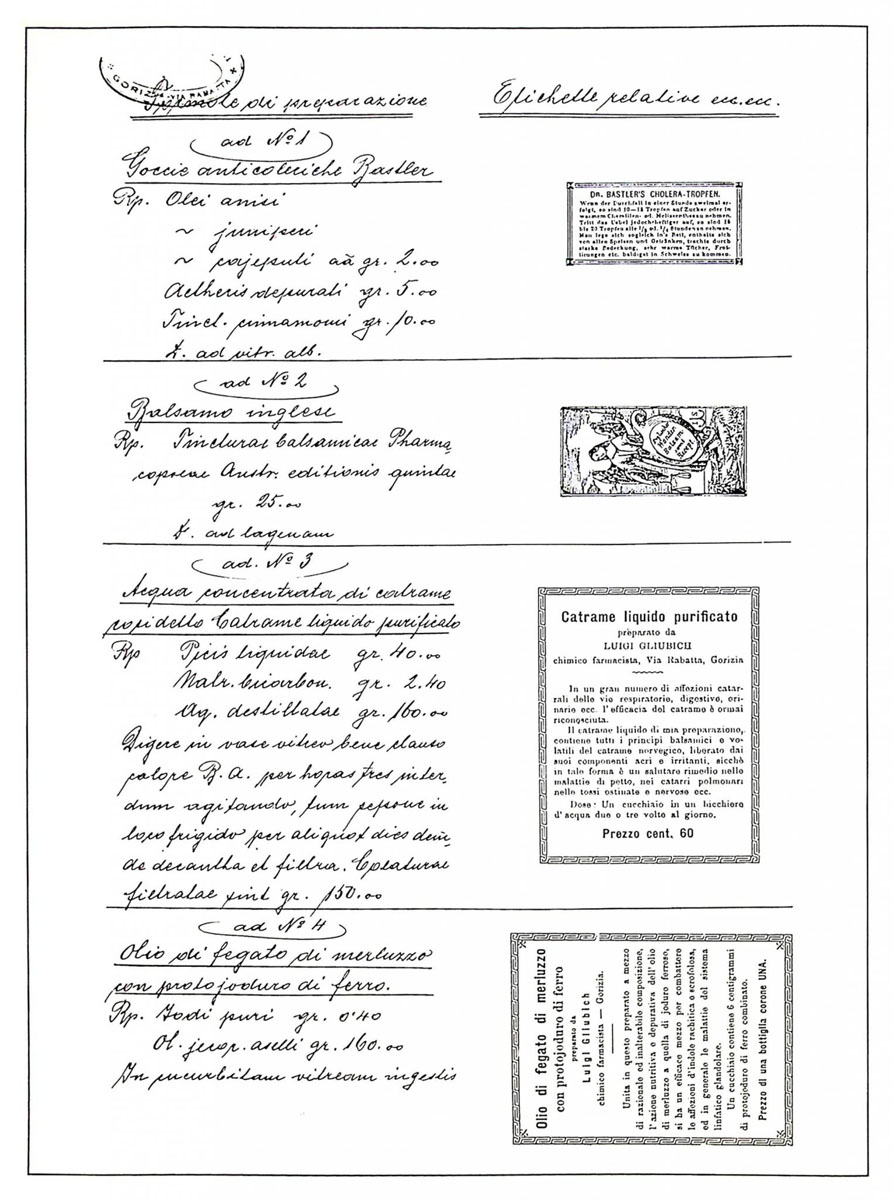 GORIZIA - VIA RABATTA
Formole di preparazione
Etichette relative
ad Nº 1
Goccie anticoleriche Bastler
Rp. Olei anisi
~ juniperi
~ cajeputi aã gr. 2.00
Aetheris depurati gr. 5.00
Tinct. cinnamomi gr. 10.00
ad vitr. alb.
DR. BASTLER'S CHOLERA-TROPFEN.
Wenn der Durchfall in einer Stunde zweimal er-
folgt, so sind 10—18 Tropfen auf Zucker oder in
warmem Chamillen- od. Melissenthee zu nehmen.
Tritt das Uebel jedoch heftiger auf, so sind 18
bis 20 Tropfen alle 1/2 od. 1/4 Stunden zu nehmen.
Man lege sich sogleich in's Bett, enthalte sich
von allen Speisen und Getränken, trachte durch
starke Bedeckung, sehr warme Tücher, Frot-
tirungen etc. baldigst in Schweiss zu kommen.
ad Nº 2
Balsamo inglese
Rp. Tincturae balsamicae Pharma-
copoeae Austr. editionis quintae
gr. 25.00
ad lagenam
ad. Nº 3
Acqua concentrata di catrame
cosidetto Catrame liquido purificato
Rp Picis liquidae gr. 40.00
Natr. bicarbon. gr. 2.40
Aq. destillatae gr. 160.00
Digere in vase vitreo bene clauso
calore B. A. per horas tres inter-
dum agitando, tum sepone in
loco frigido per aliquot dies dein-
de decantha et filtra. Colaturae
filtratae sint gr. 150.00
Catrame liquido purificato
preparato da
LUIGI GLIUBICH
chimico farmacista, Via Rabatta, Gorizia
In un gran numero di affezioni catar-
rali delle vie respiratorie, digestive, ori-
narie ecc. l'efficacia del catrame è ormai
riconosciuta.
Il catrame liquido di mia preparazione,
contiene tutti i principi balsamici e vo-
latili del catrame norvegico, liberato dai
suoi componenti acri e irritanti, sicchè
in tale forma è un salutare rimedio nelle
malattie di petto, nei catarri polmonari
nelle tossi ostinate e nervose ecc.
Dose: Un cucchiaio in un bicchiere
d'acqua due o tre volte al giorno.
Prezzo cent. 60
ad Nº 4
Olio di fegato di merluzzo
con protojoduro di ferro.
Rp. Jodi puri gr. 0'40
Ol. jecor. aselli gr. 160.00
In cucurbitam vitream ingestis
Olio di fegato di merluzzo
con protojoduro di ferro
preparato da
Luigi Gliubich
chimico farmacista — Gorizia.
Unita in questo preparato a mezzo
di razionale ed inalterabile composizione,
l'azione nutritiva e depurativa dell'olio
di merluzzo a quella di joduro ferroso,
si ha un efficace mezzo per combattere
le affezioni d'indole rachitica e scrofolosa,
ed in generale le malattie del sistema
linfatico glandolare.
Un cucchiaio contiene 6 centigrammi
di protojoduro di ferro combinato.
Prezzo di una bottiglia corone UNA.